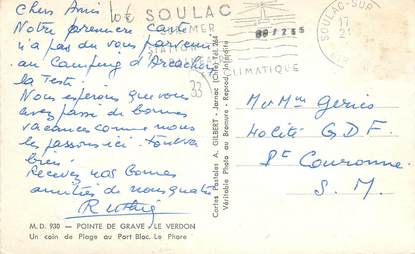 Chers Amis
Notre première carte
n'a pas du vous parvenir
au Camping d'Arcachon
la Teste.
Nous espérons que vous
avez passé de bonnes
vacances comme nous
les passons ici tout va
bien.
Recevez nos bonnes
amitiés de nous quatre
10€
33
SOULAC
S/MER
STATION
CLIMATIQUE
SOULAC-SUR
17
21
Cartes Postales A. GILBERT - Jarnac (Chte) Tél. 264
Véritable Photo au Bromure - Reprod. Interdite
Mr Mme
40 Cité G.D.F.
Pt Couronne
S.M.
M.D. 930 - POINTE DE GRAVE - LE VERDON
Un coin de Plage au Port Bloc. Le Phare